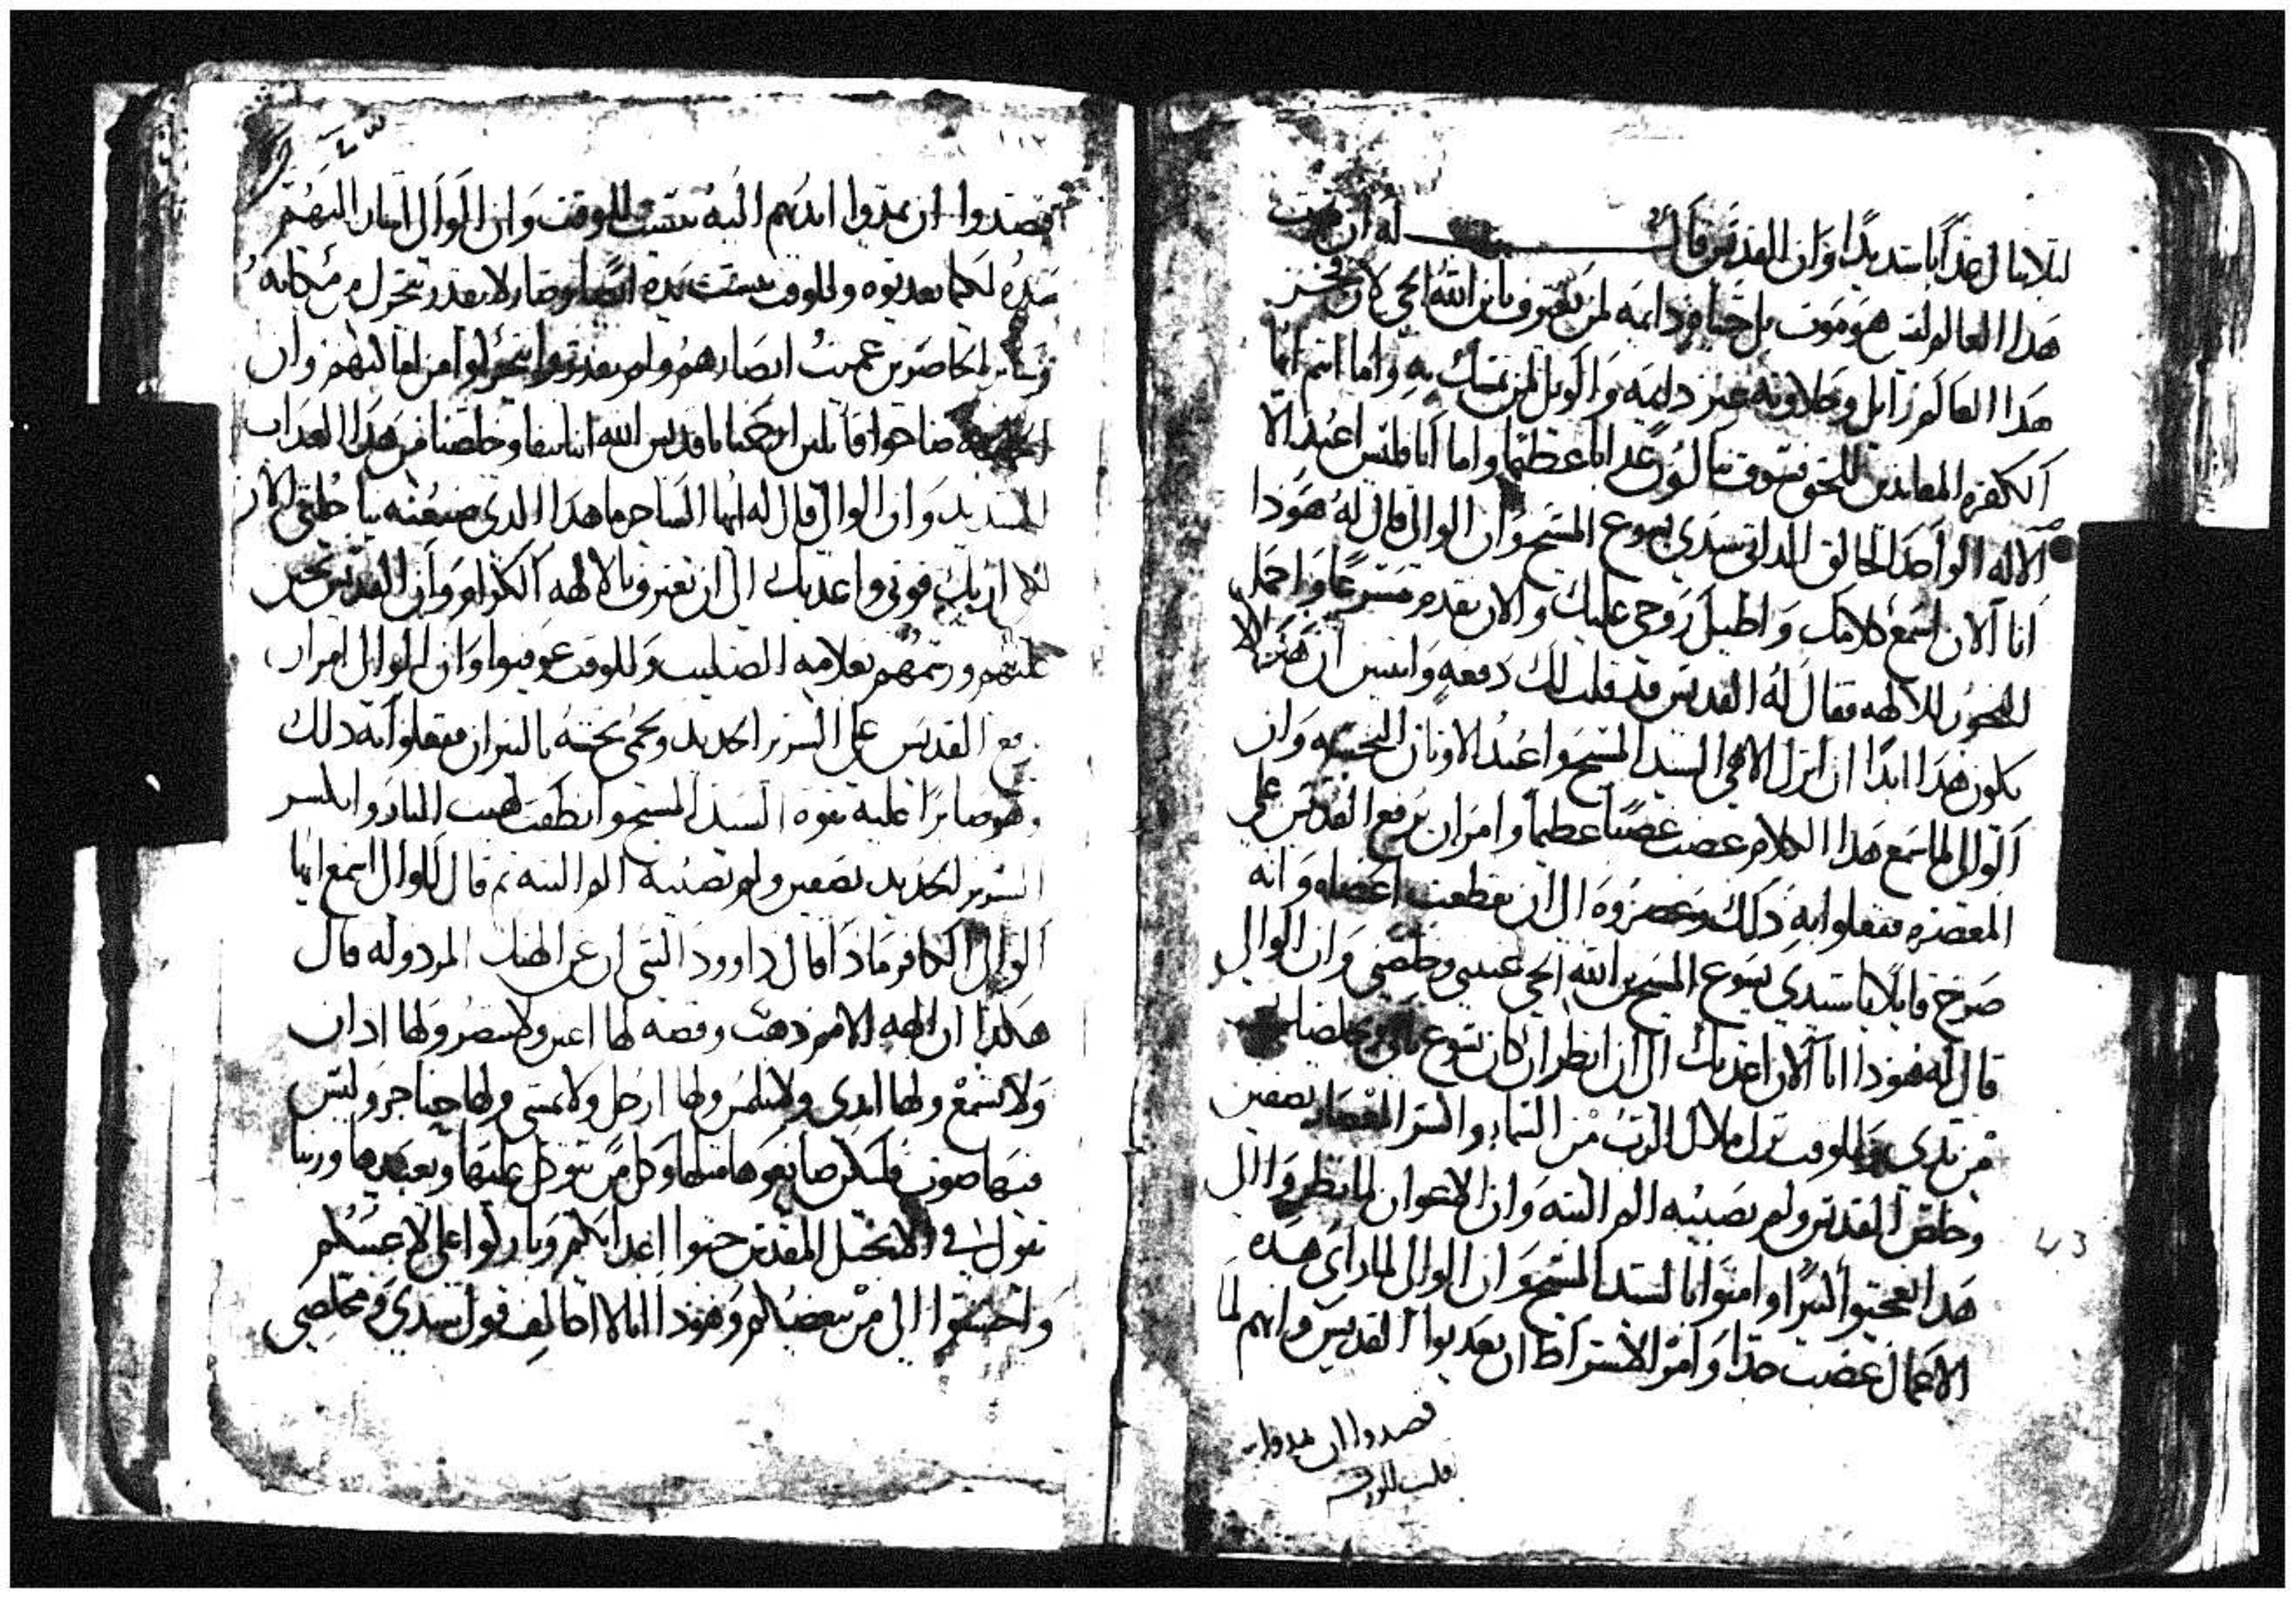 ليلا ينال عذابا شديدا وان القديس قال له ان موت
هدا العالم ليت هو موت بل حياه دايمه لمن يعترف بابن الله الحي لان فخر
هدا العالم زايل وحلاوته غير دايمه والويل لمن تمسك به واما انتم ايها
الكفره المعاندين للحق فسوف تنالون عدابا عظيما واما انا فليس اعبد الا
الاله الواحد الخالق الداتي سيدي يسوع المسيح وان الوالي قال له هودا
انا الان اسمع كلامك واطيل روحي عليك والان تقدم مسرعا واحمل
البخور للالهه فقال له القديس قد قلت لك دفعه واتنين ان هدا لا
يكون هدا ابدا ان اترك الاهي السيد المسيح واعبد الاوتان النجسه وان
الوالي لما سمع هدا الكلام غضب غضبا عظيما وامر ان يرفع القديس على
المعصره ففعلوا به دلك وعصروه الى ان تقطعت اعضاه وانه
صرخ قايلا يا سيدي يسوع المسيح ابن الله الحي اعيني وخلصني وان الوالي
قال له هودا انا الان اعدبك الى ان انظر ان كان يسوع ياتي يخلصك
من يدي وللوقت نزل ملاك الرب من السماء وانشر المعصار نصفين
وخلص القديس ولم يصيبه الم البته وان الاعوان لما نظروا الى
هدا تعجبوا كتيرا وامنوا بالسيد المسيح وان الوالي لما راى هده
الاعمال غضب جدا وامر الاشراط ان يعدبوا القديس وانهم لما
قصدوا ان يمدوا
فقصدوا ان يمدوا ايديهم اليه يبست للوقت وان الوالي اشار اليهم
بيده لكيما يعدبوه وللوقت يبست يده ايضا وصار لا يقدر يتحرك من مكانه
وساير الحاضرين عميت ابصارهم ولم يقدروا يتحركوا من اماكنهم وان
صاحوا قايلين ارحمنا يا قديس الله اننا بنا وخلصنا من هدا العداب
الشديد وان الوالي قال له ايها الساحر ما هدا الدي صنعته بنا خلني الان
لكي اريك قوتي واعدبك الى ان تعترف بالالهه الكرام وان القديس تحنن
عليهم ورشمهم بعلامه الصليب وللوقت عوفيوا وان الوالي امر ان
يرفع القديس على السرير الحديد ويحمى تحته بالنيران ففعلوا به دلك
وهو صابرا عليه بقوه السيد المسيح وانطفت لهيب النار وانكسر
السرير الحديد نصفين ولم تصيبه الم البته تم قال للوالي اسمع ايها
الوالي الكافر مادا قال داوود النبي ان عن الهتك المردوله قال
هكدا ان الهه الامم دهب وفضه لها اعين ولا تبصر ولها ادان
ولا تسمع ولها ايدي ولا تلمس ولها ارجل ولا تمشي ولها حناجر وليس
فيها صوت فليكن صانعوها متلها وكل من يتوكل عليها ويعبدها وربنا
يقول في الانجيل المقدس حبوا اعدايكم وباركوا على لاعنيكم
واحسنوا الى من يبغضكم وهودا انا لا اخالف قول سيدي ومخلصي